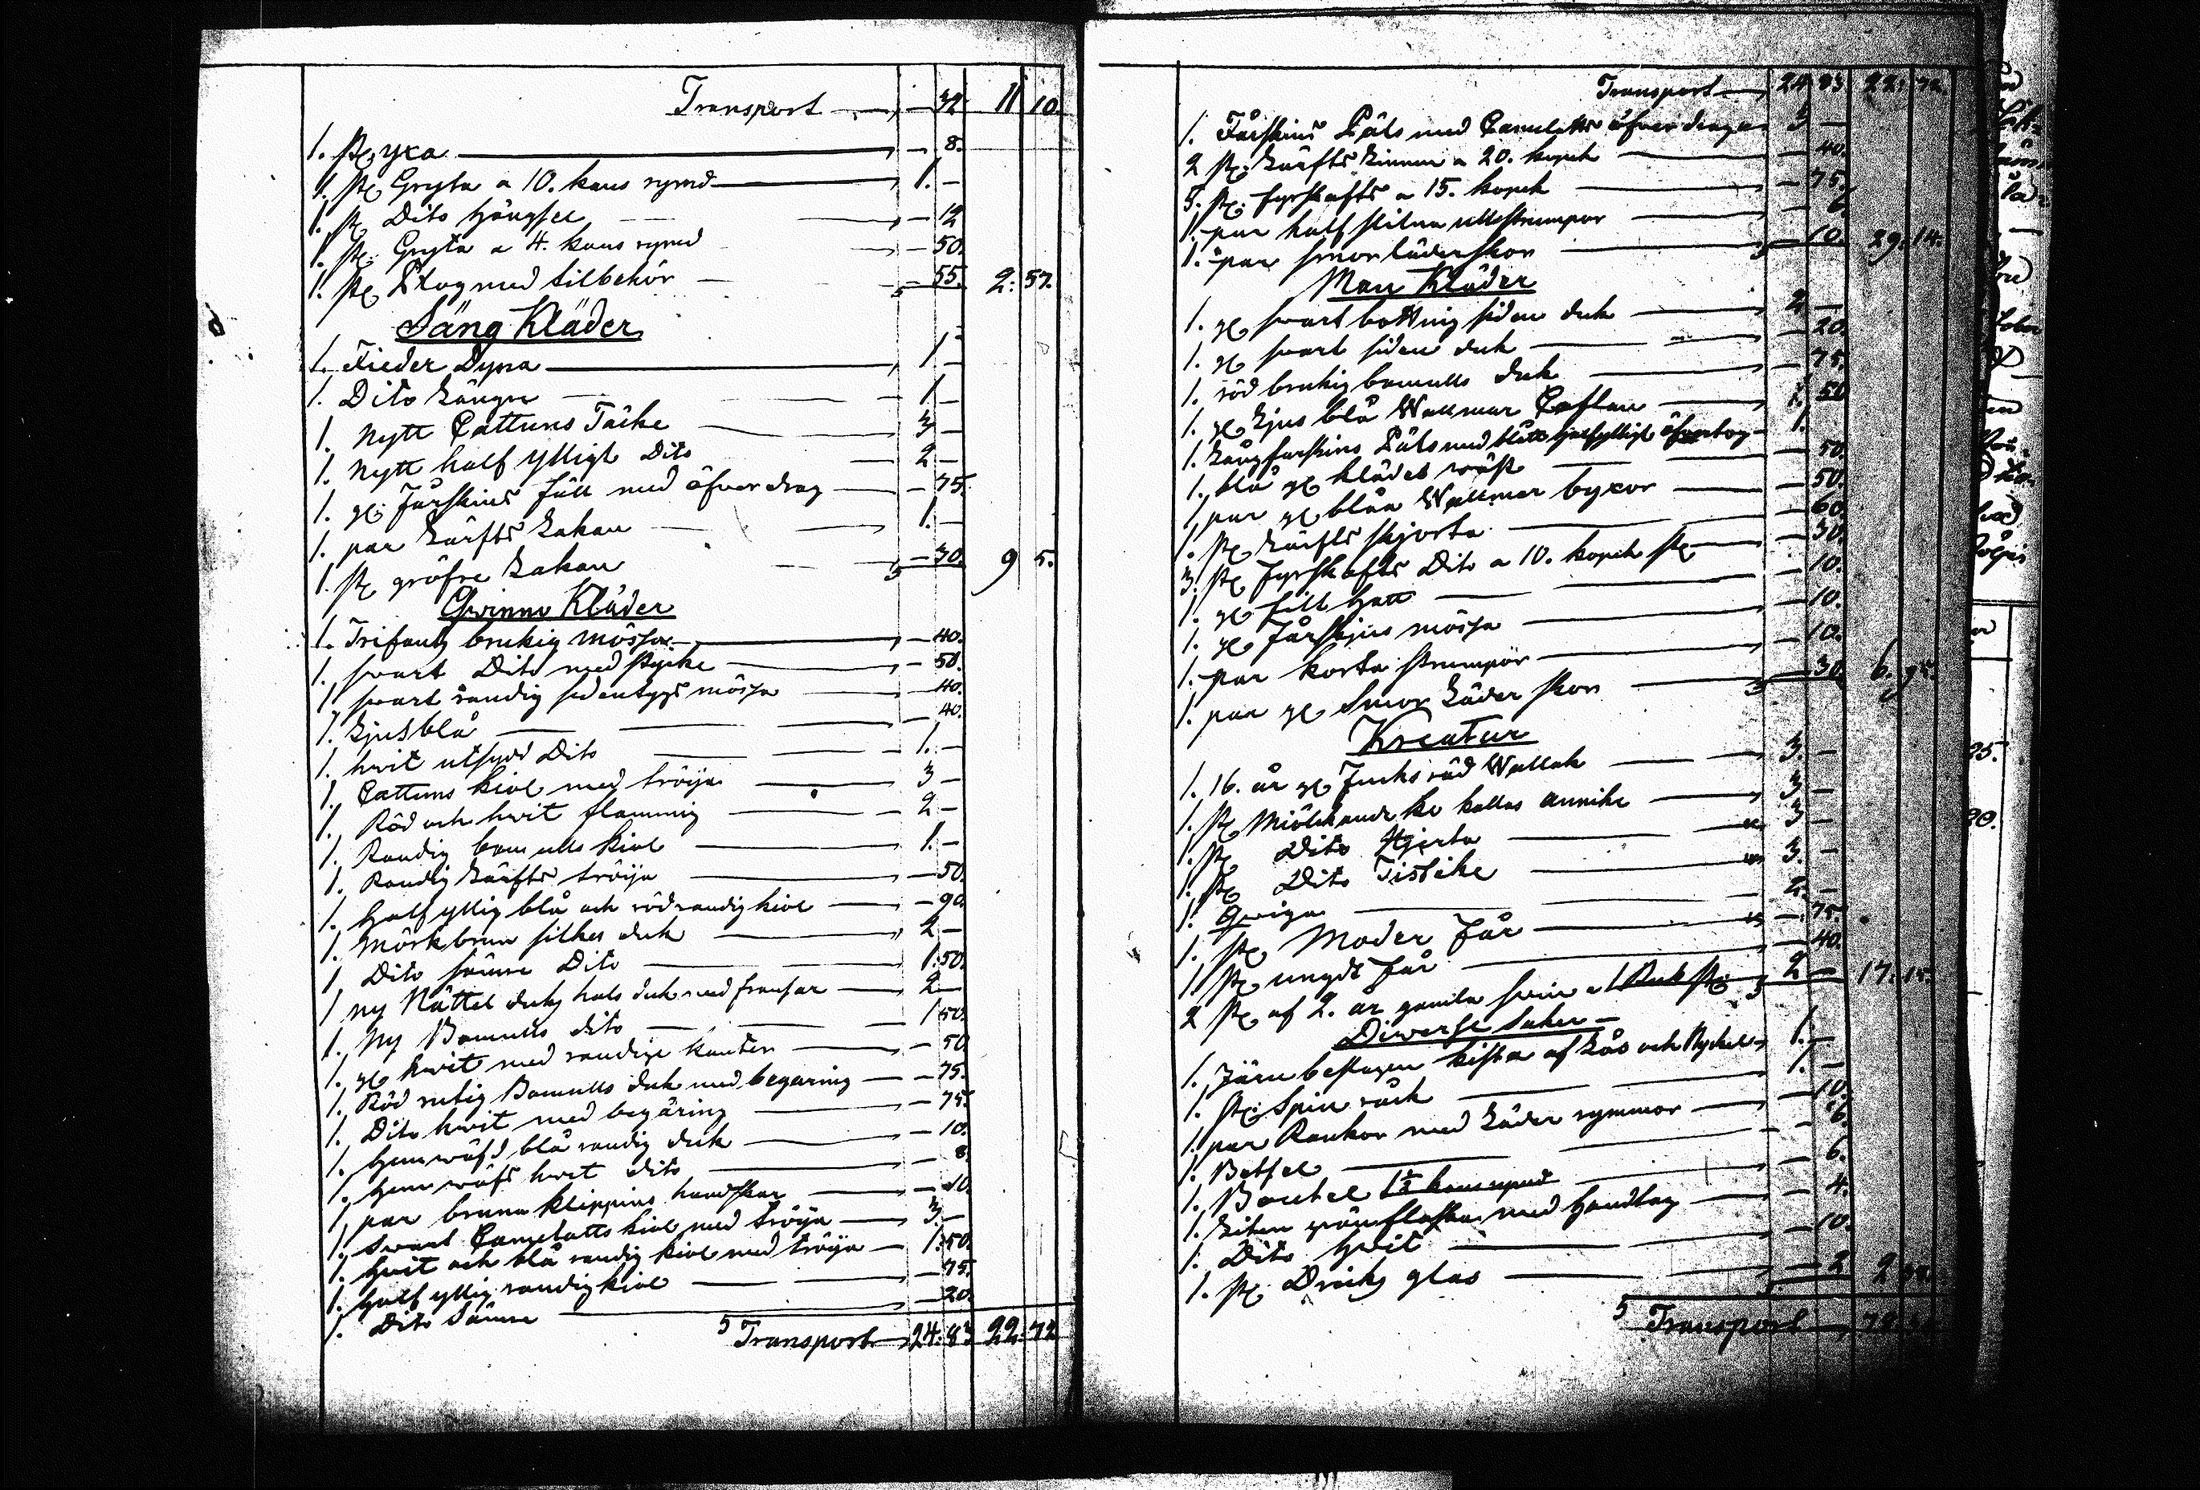 Transport — 32 11 10.
1. st. yxa — 8.
1. st. Gryta a 10. kans rymd 1. —
1. st. Dito hängsel — 12
1. st. Gryta a 4. kans rymd — 50.
1. st. Plog med tilbehör — 55. 2: 57.
Säng Kläder
1. Fieder Dyna 1. —
1. Dito Längre 1 —
1. Nytt Cattuns Täcke 3 —
1. Nytt half ylligt Dito 2 —
1. gl. Fårskins fäll med öfverdrag — 75.
1. par Lärfts Lakan 1. —
1. st. gröfre Lakan — 30. 9 5.
Qvinno Kläder
1. brukig mössa — 40.
1. svart Dito med stycke — 50.
1. svart randig sidentygs mössa — 40.
1. Ljusblå — 40.
1. hvit utsydd Dito 1. —
1. Cattuns kiol med tröija 3 —
1. Röd och hvit flammig 2 —
1. Randig bomulls kiol 1. —
1. Randig Lärfts tröija — 50.
1. half yllig blå och rödrandig kiol — 90.
1. Mörkbrun silkes duk 2 —
1. Dito sämre Dito 1: 50.
1. ny Nättel duks hals duk med fransar 2 —
1. Ny Bomulls dito 1 50.
1. gl. hvit med randige kanter — 50
1. Röd rutig Bomulls duk med begaring — 75.
1. Dito hvit med begäring — 75.
1. hemväfd blå randig duk — 10.
1. hem väfd hvit dito — 8.
1. par bruna klippins handskar — 10.
1. Svart Camelotts kiol med tröija 3. —
1. hvit och blå randig kiol med tröija 1: 50.
1. half yllig randig kiol — 75.
1. Dito Sämre — 20.
Transport 24: 83 22: 72
Transport 24 83 22: 72.
1. Fårskins Päls med Camelotts öfverdrag 3 —
2 st. Lärfts Linnen a 20. kopek — 40.
5. st. fyrskafts a 15. kopek — 75.
1. par half slitna ullstrumpor — 6.
1. par smorläderskor — 10. 29: 14.
Man Kläder
1. gl. svart bottnig siden duk 2 —
1. gl. svart siden duk — 20.
1. röd brukig bomulls duk — 75.
1. gl. Ljus blå Wallmar Caftan 1. 50
1. Lång fårskins Päls med blått halfylligt öfvertog 1.
1. blå gl. klädes väst — 50.
1. par gl. blåa Wallmar byxor — 50.
1. st. Lärfts skjorta — 60.
3. st. fyrskafts Dito a 10. kopek st. — 30.
1. gl. filt hatt — 10.
1. gl. Fårskins mössa — 10.
1. par korta strumpor — 10.
1. par gl. Smor Läder skor — 30 6. 95.
Kreatur
1. 16. år gl. Fuchs röd Wallak 3. —
1. st. Miölkande ko kallas Annika 3 —
1. st. Dito Hjerta 3 —
1. st. Dito Tistike 3. —
1. Qviga 2. —
1. st. Moder Får — 75.
1 st. ungdt får — 40.
2 st. af 2. år gamla svin a 1 Rub st. 2 — 17: 15.
Diverse Saker
1. Järn beslagen kista af Lås och Nyckel 1. —
1. st. Spin råck 1. —
1. par Rankor med Läder rymmor — 10.
1. Betsel — 6.
1. Boutel 1½ kans rymd — 6.
1. Liten grön flaska med handtag — 4.
1. Dito hvit — 10.
1. st. Dricks glas — 2
Transport